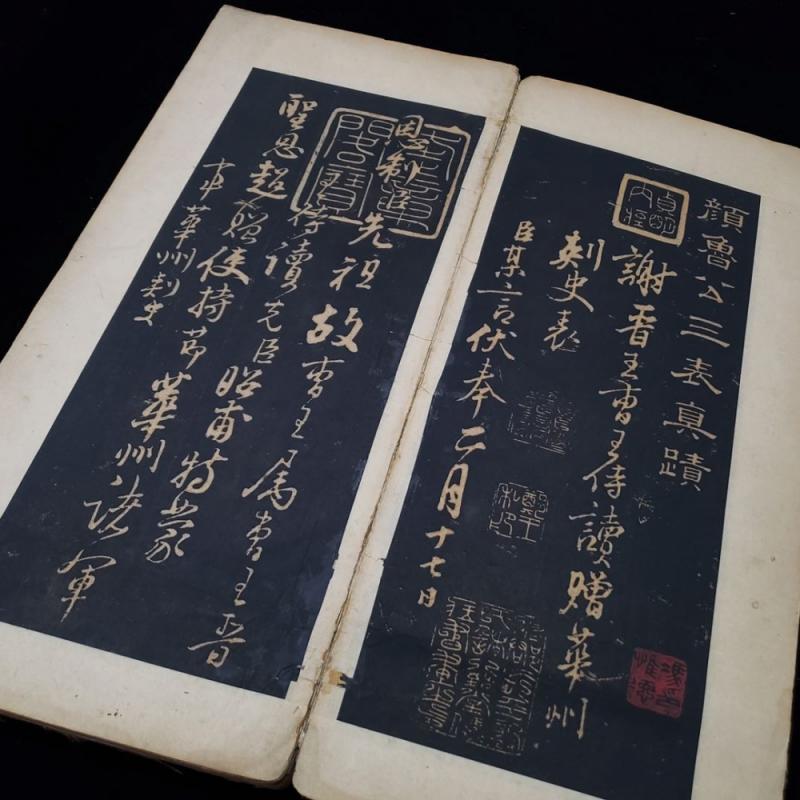 顔魯公三表真蹟
謝晉王曹王侍讀贈華州
刺史表
臣某言伏奉二月十七日
恩制追先祖故曹王属曹王晉
王侍讀先臣昭甫特蒙
聖恩超贈使持節華州諸軍
事華州刺史